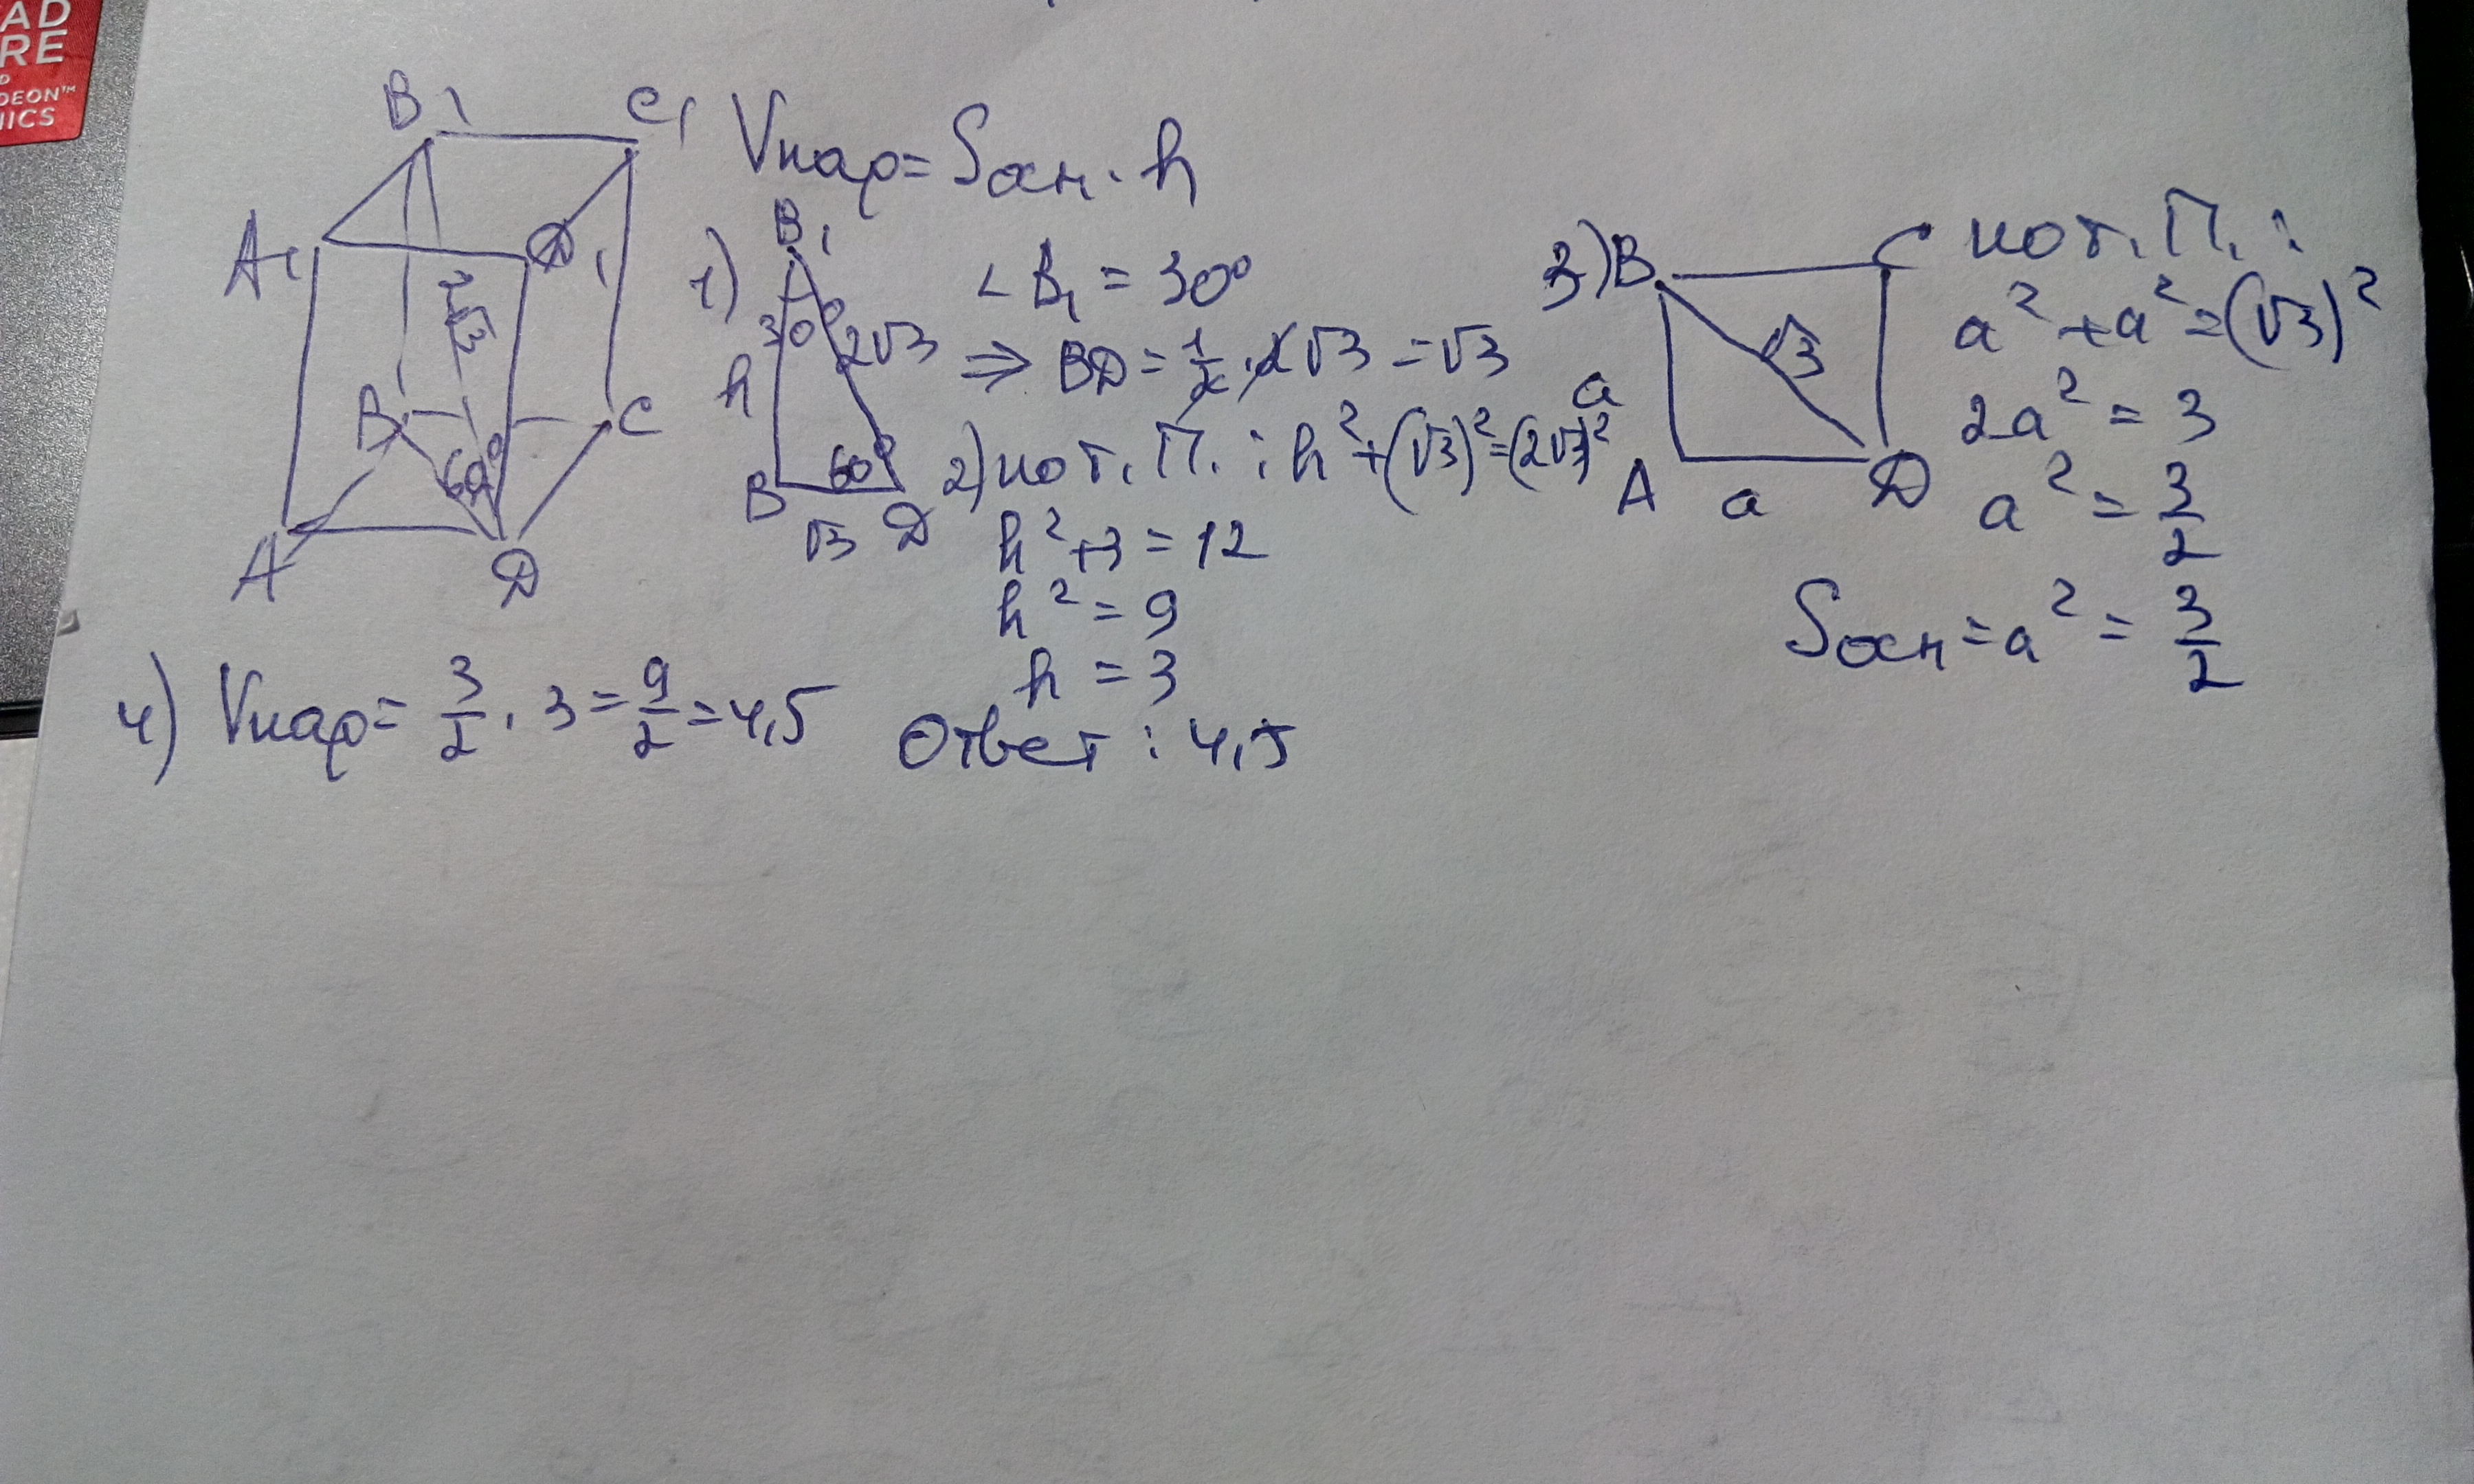 AD
RE
DEON™
NICS
B₁ C₁
A₁ D₁
2√3
B C
60°
A D
Vпар = Sосн · h
1) B₁
30° 2√3
h
60°
B √3 D
∠B₁ = 30°
⇒ BD = 1/2 · 2√3 = √3
2) по т. П. : h² + (√3)² = (2√3)²
h² + 3 = 12
h² = 9
h = 3
3) B C
√3
a
A a D
по т. П. :
a² + a² = (√3)²
2a² = 3
a² = 3/2
Sосн = a² = 3/2
4) Vпар = 3/2 · 3 = 9/2 = 4,5
Ответ : 4,5